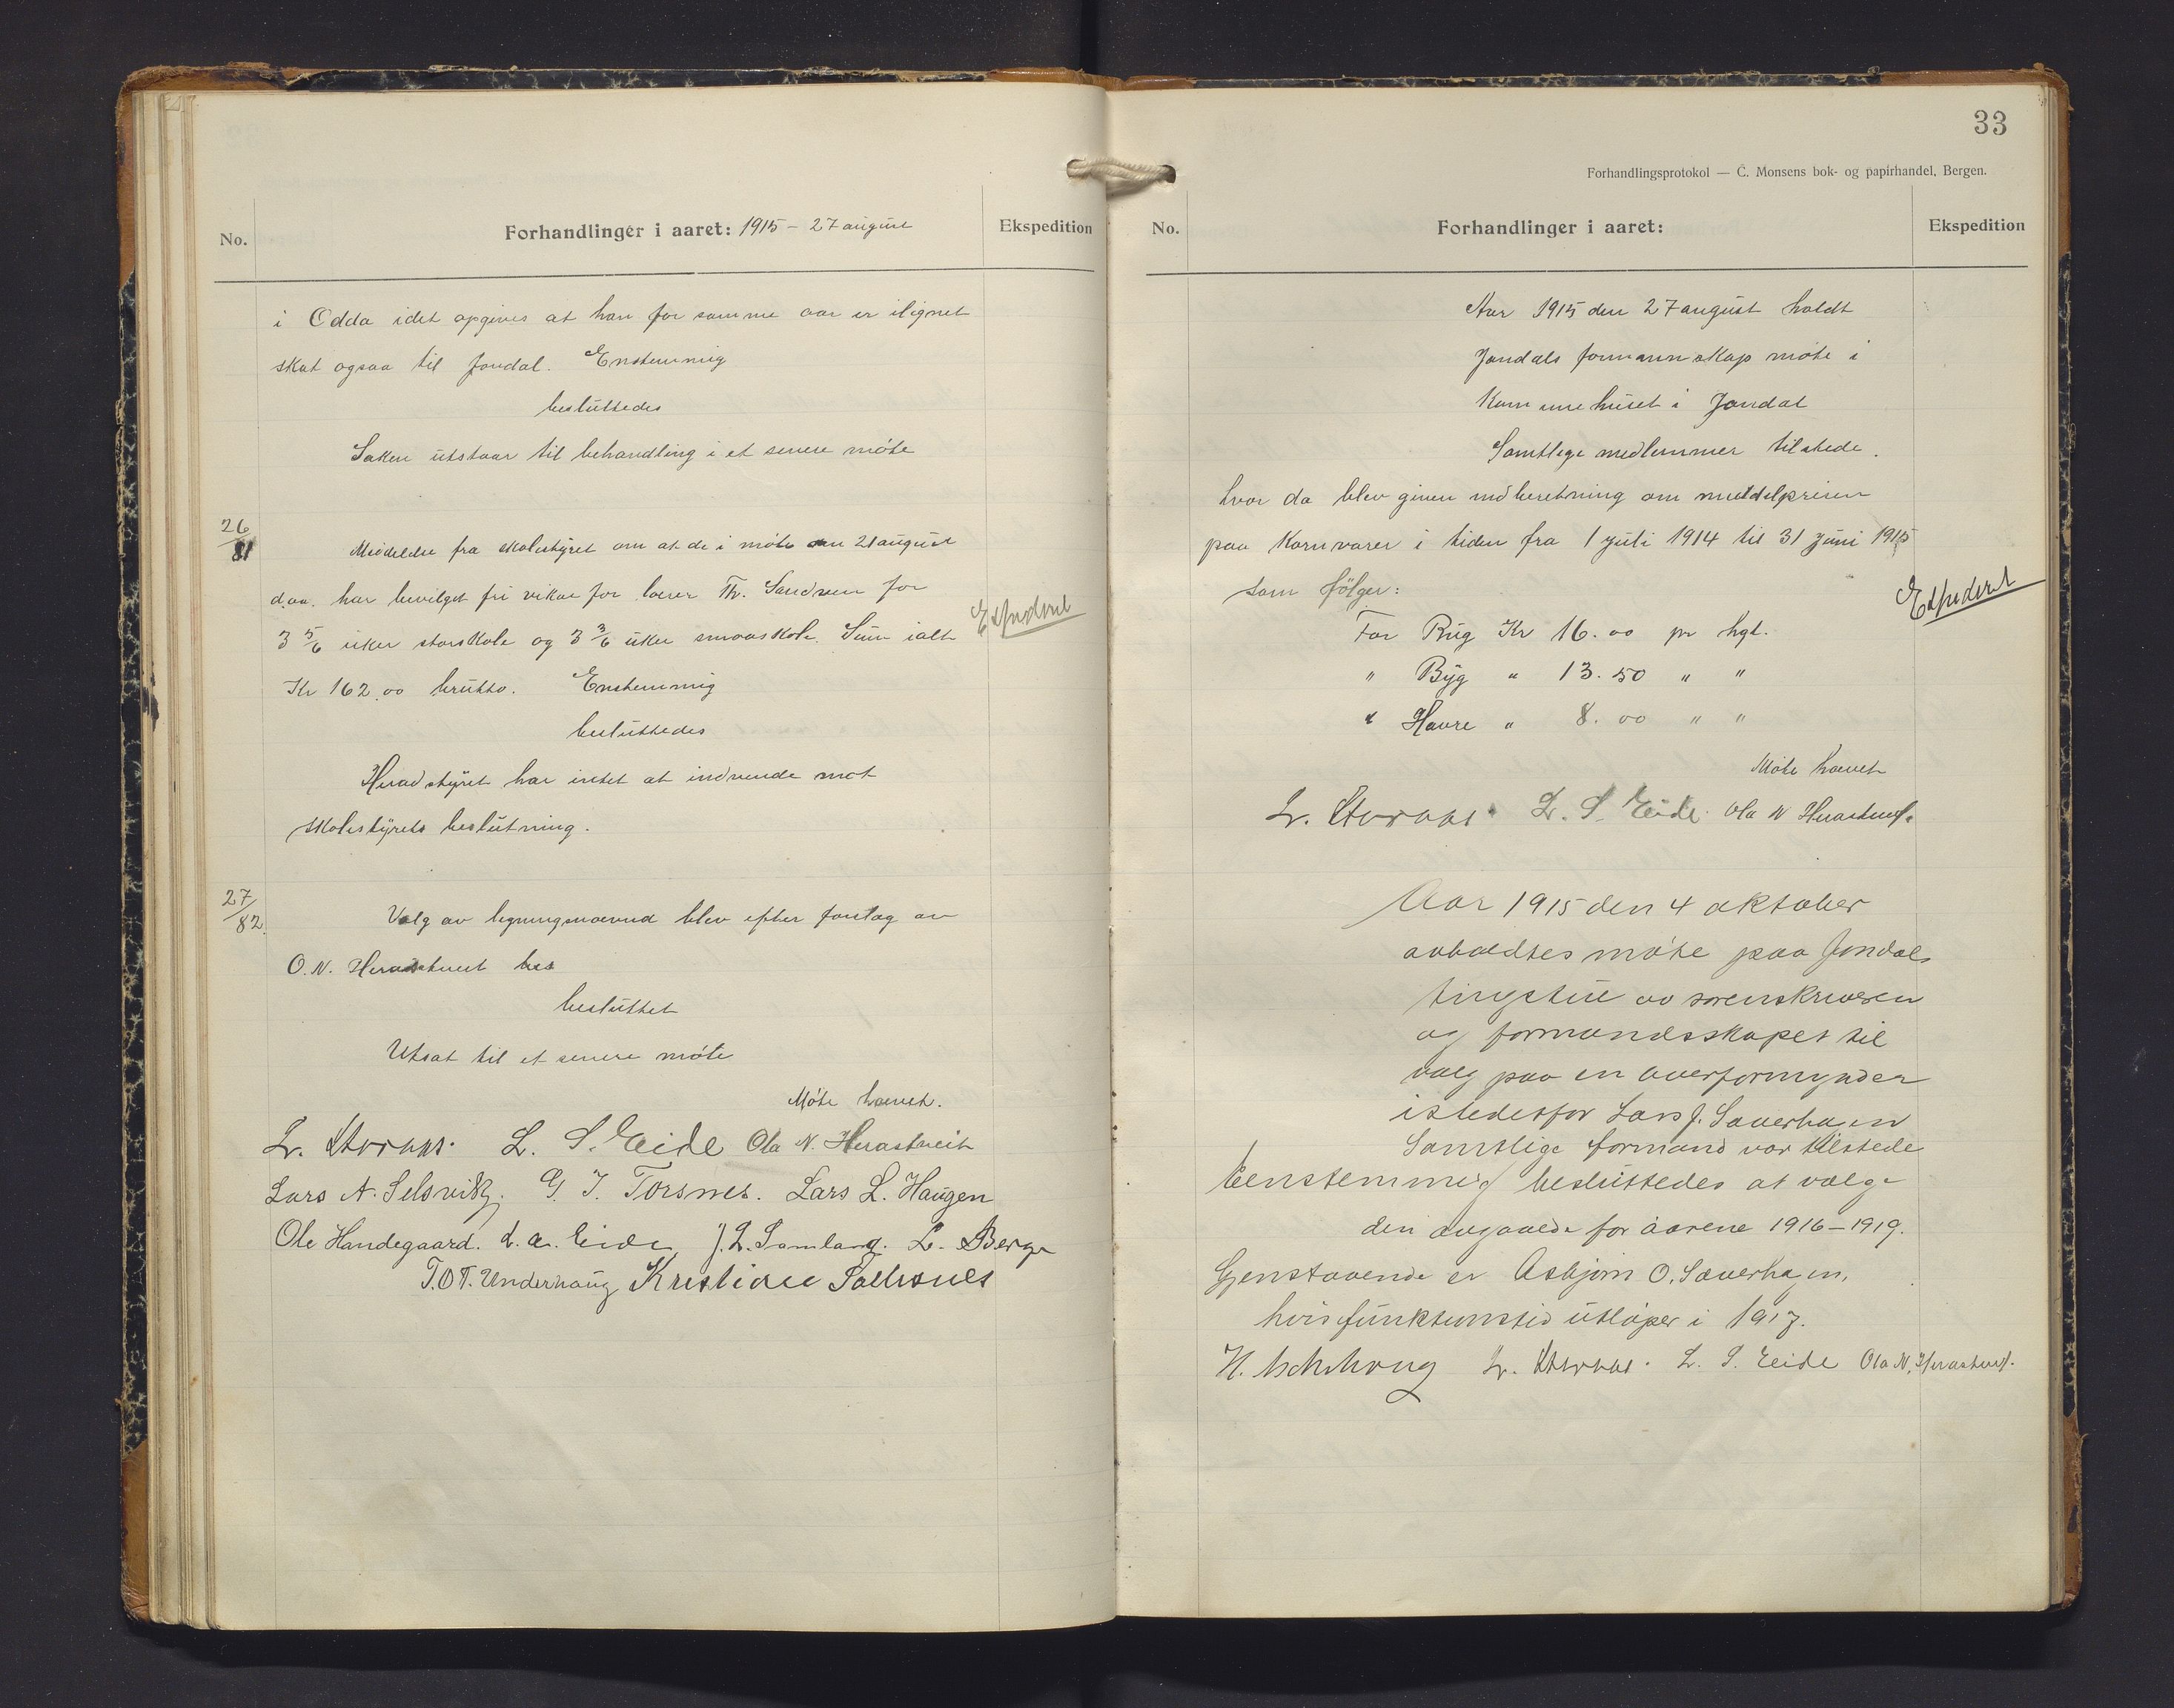 No.
Forhandlinger i aaret: 1915 - 27 august
Ekspedition
i Odda idet opgives at han for samme aar er ilignet
skat ogsaa til Jondal. Enstemmig
besluttedes
Saken utstaar til behandling i et senere møte
26/81
Meddelelse fra skolestyret om at de i møte den 21 august
d.aa. har bevilget fri vikar for lærer Th. Sandven for
3 5/6 uker storskole og 3 3/6 uker smaaskole. Sum ialt
Ekspedert
Kr 162.00 brutto. Enstemmig
besluttedes
Heradstyret har intet at indvende mot
skolestyrets beslutning.
27/82.
Valg av ligningsnævnd blev efter forslag av
O. N. Herastveit bes
besluttet
Utsat til et senere møte
Møte hævet.
L. S. Eide Ola N. Herastveit
Lars A. Selsvik. G. J. Torsnes. Lars L. Haugen
Ole Handegaard. L. A. Eide J. L. Samland. L. Berge
T.O.T. Underhaug Kristian Solesnes
33
Forhandlingsprotokol — C. Monsens bok- og papirhandel, Bergen.
No.
Forhandlinger i aaret:
Ekspedition
Aar 1915 den 27 august holdt
Jondals formannskap møte i
Kommunehuset i Jondal
Samtlege medlemmer tilstede.
hvor da blev given indberetning om middelprisen
paa Kornvarer i tiden fra 1 juli 1914 til 31 juni 1915
som følger:
Ekspedert
For Rug Kr 16.00 pr hgl.
" Byg " 13.50 " "
" Havre " 8.00 " "
Møte hævet
L. S. Eide. Ola N Herastveit.
Aar 1915 den 4 oktober
avholdtes møte paa Jondals
tingstue av sorenskriveren
og formandsskapet til
valg paa en overformynder
istedetfor Lars J. Saverhagen
Samtlige formænd var tilstede
Eenstemmig besluttedes at vælge
den avgaaede for aarene 1916-1919.
Gjenstaaende er Asbjørn O. Saverhagen,
hvis funktionstid utløper i 1917.
L. S. Eide Ola N. Herastveit.